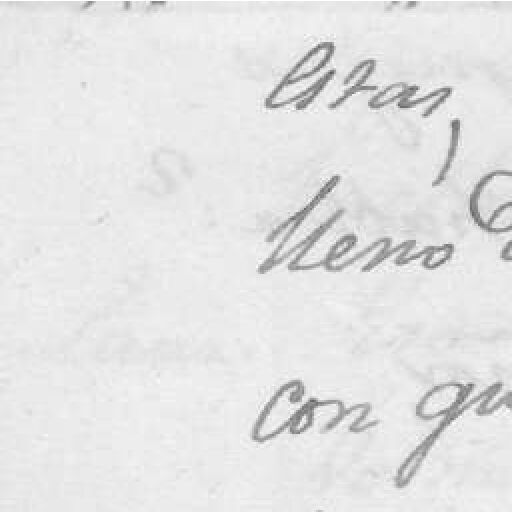 estas
lleno
con